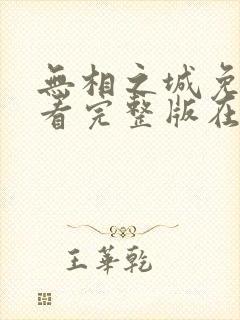 無相之城免
看完整版在
王華乾